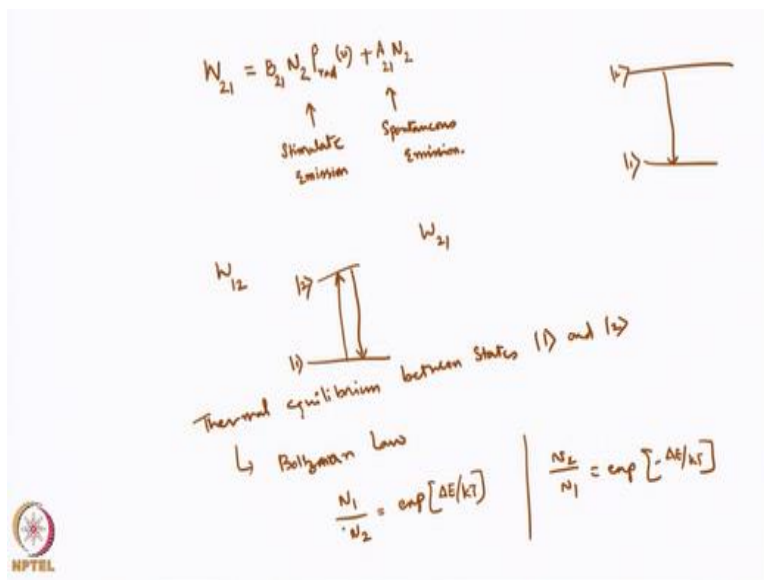 W₂₁ = B₂₁ N₂ ρ_rad (ν) + A₂₁ N₂
↑ ↑
Stimulate Emission
Spontaneous Emission.
|2>
|1>
W₁₂
W₂₁
|2>
|1>
Thermal equilibrium between states |1> and |2>
↳ Boltzman Law
N₁/N₂ = exp[ΔE/kT]
N₂/N₁ = exp[-ΔE/kT]
NPTEL